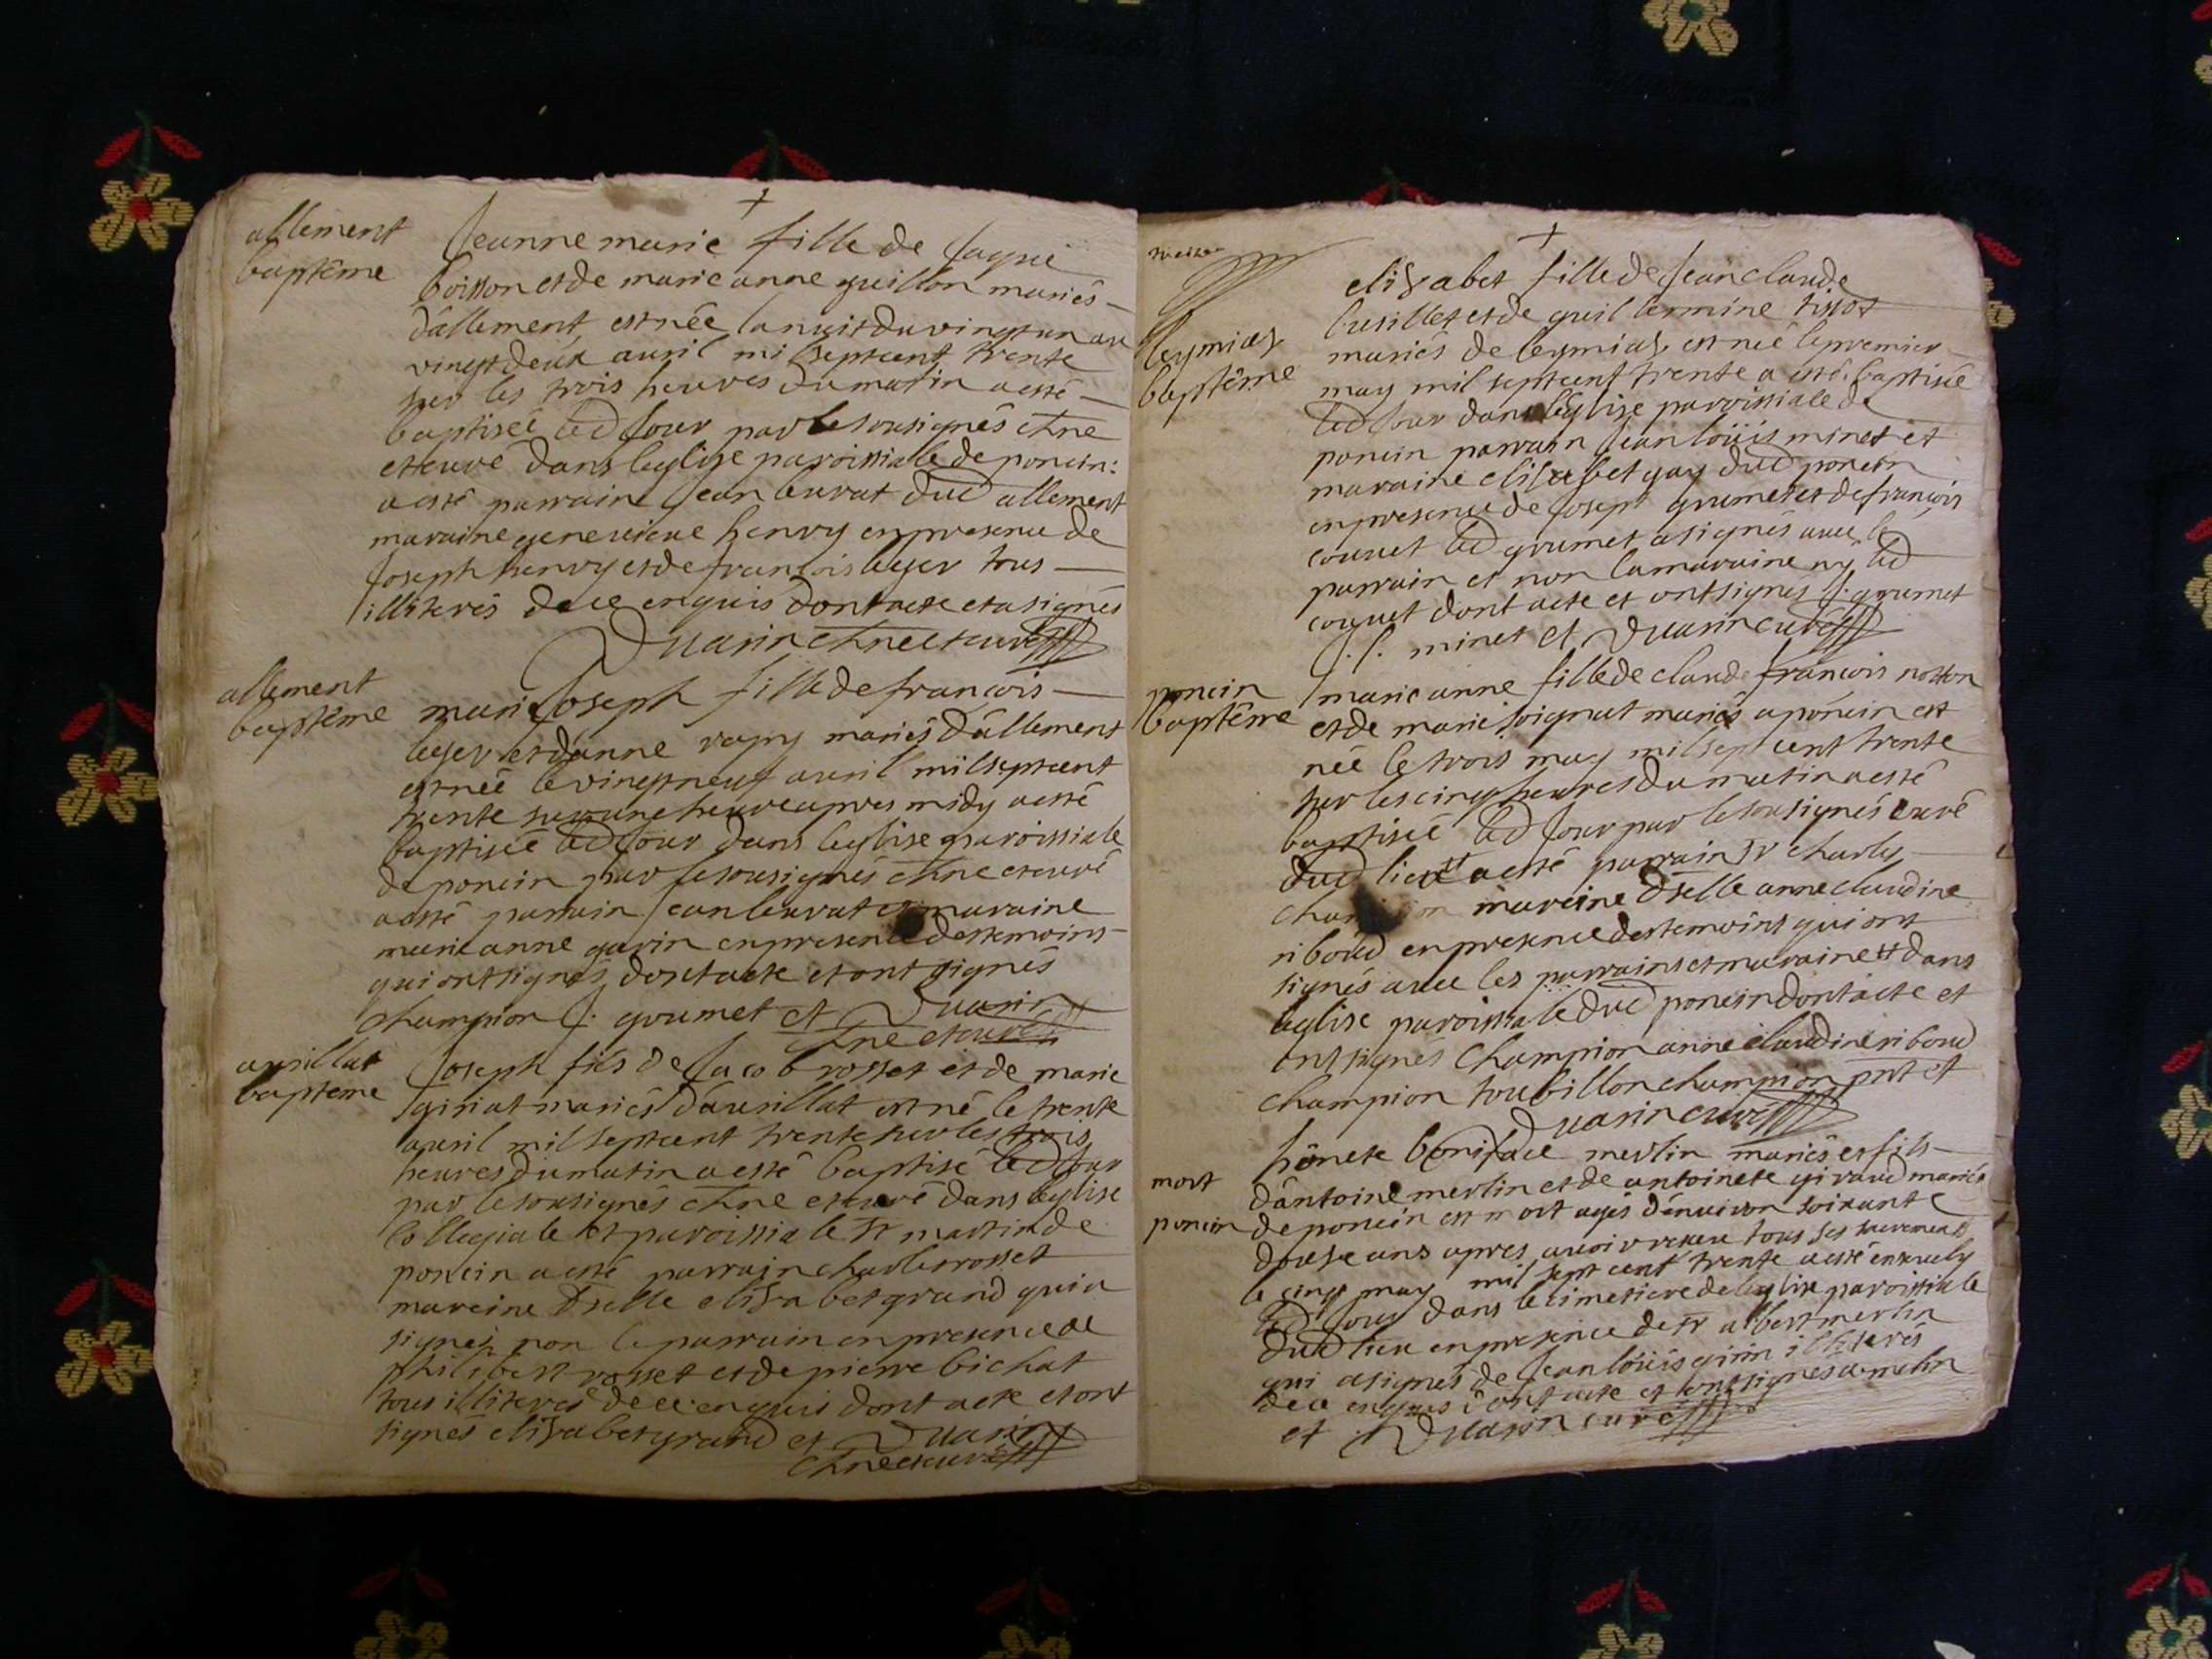 allement
baptême
Jeanne marie fille de Jaque
boisson et de marie anne guillon mariés
d'allement est née la nuit du vingt un au
vingt deux auril mil sept cent trente
sur les trois heures du matin a esté
baptisée led Jour par le sousignés chne
et curé dans leglise paroissiale de poncin:
a esté parrain Jean leurat dud allement
maraine geneuieue henry en presence de
Joseph henry et de francois leger tous
illiterés de ce enquis dont acte et a signés
Duarin chne et curé
allement
baptême
marie Joseph fille de francois
leger et d'anne rapy mariés d'allement
est née le vingt neuf auril mil sept cent
trente sur une heure apres midy a esté
baptisée led Jour dans leglise paroissiale
de poncin par le sousignés chne et curé
a esté parrain Jean leurat et maraine
marie anne garin en presence des temoins
qui ont signés dont acte et ont signés
champion J. grumet et Duarin
chne et curé
auillat
bapteme
Joseph fils de Jacob rosset et de marie
giriat mariés d'aurillat est né le trente
auril mil sept cent trente sur les trois
heures du matin a esté baptisé led Jour
par le sousignés chne et curé dans leglise
collegiale et paroissiale st martin de
poncin a esté parrain charle rosset
mareine dselle elisabet grand qui a
signés non le parrain en presence de
philibert rosset et de pierre bichat
tous illiterés de ce enquis dont acte et ont
signés elisabet grand et Duarin
chne et curé
leymias
baptême
elisabet fille de Jean claude
lusillet et de guillermine tissot
mariés de leymias est née le premier
may mil sept cent trente a esté baptisée
led Jour dans leglise paroissiale de
poncin parrain Jean loüis minet et
maraine elisabet gay dud poncin
en presence de Josept grumet et de francois
couuet led grumet a signés auec le
parrain et non la maraine ny led
couuet dont acte et ont signés J. grumet
J. l. minet et Duarin curé
poncin
baptême
marie anne fille de claude francois
et de marie soignat mariés a poncin est
née le trois may mil sept cent trente
sur les cinq heures du matin a esté
baptisée led Jour par le sousignés curé
dud lieu a esté parrain sr charly
champion mareine dselle anne claudine
riboud en presence des temoins qui ont
signés auec les parrains et maraine dans
leglise paroissiale dud poncin dont acte et
ont signés champion anne claudine riboud
champion toubillon champion prt et
Duarin curé
mort
poncin
hönete boniface merlin mariés et fils
d'antoine merlin et de antoinete giraud mariés
de poncin est mort agés d'enuiron soixante
douse ans apres auoir receu tous ses sacrements
le cinq may mil sept cent trente a esté enseuely
led Jour dans le cimetiere de leglise paroissiale
dud lieu en presence de sr albert merlin
qui a signés de Jean loüis girin illiterés
de ce enquis dont acte et ont signés a. merlin
et Duarin curé